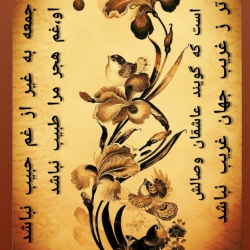 جمعه به غیر از غم حبیب نباشد
او،غم هجر مرا طبیب نباشد
است که گویند عاشقان وصالش
تر ز غریب جهان غریب نباشد